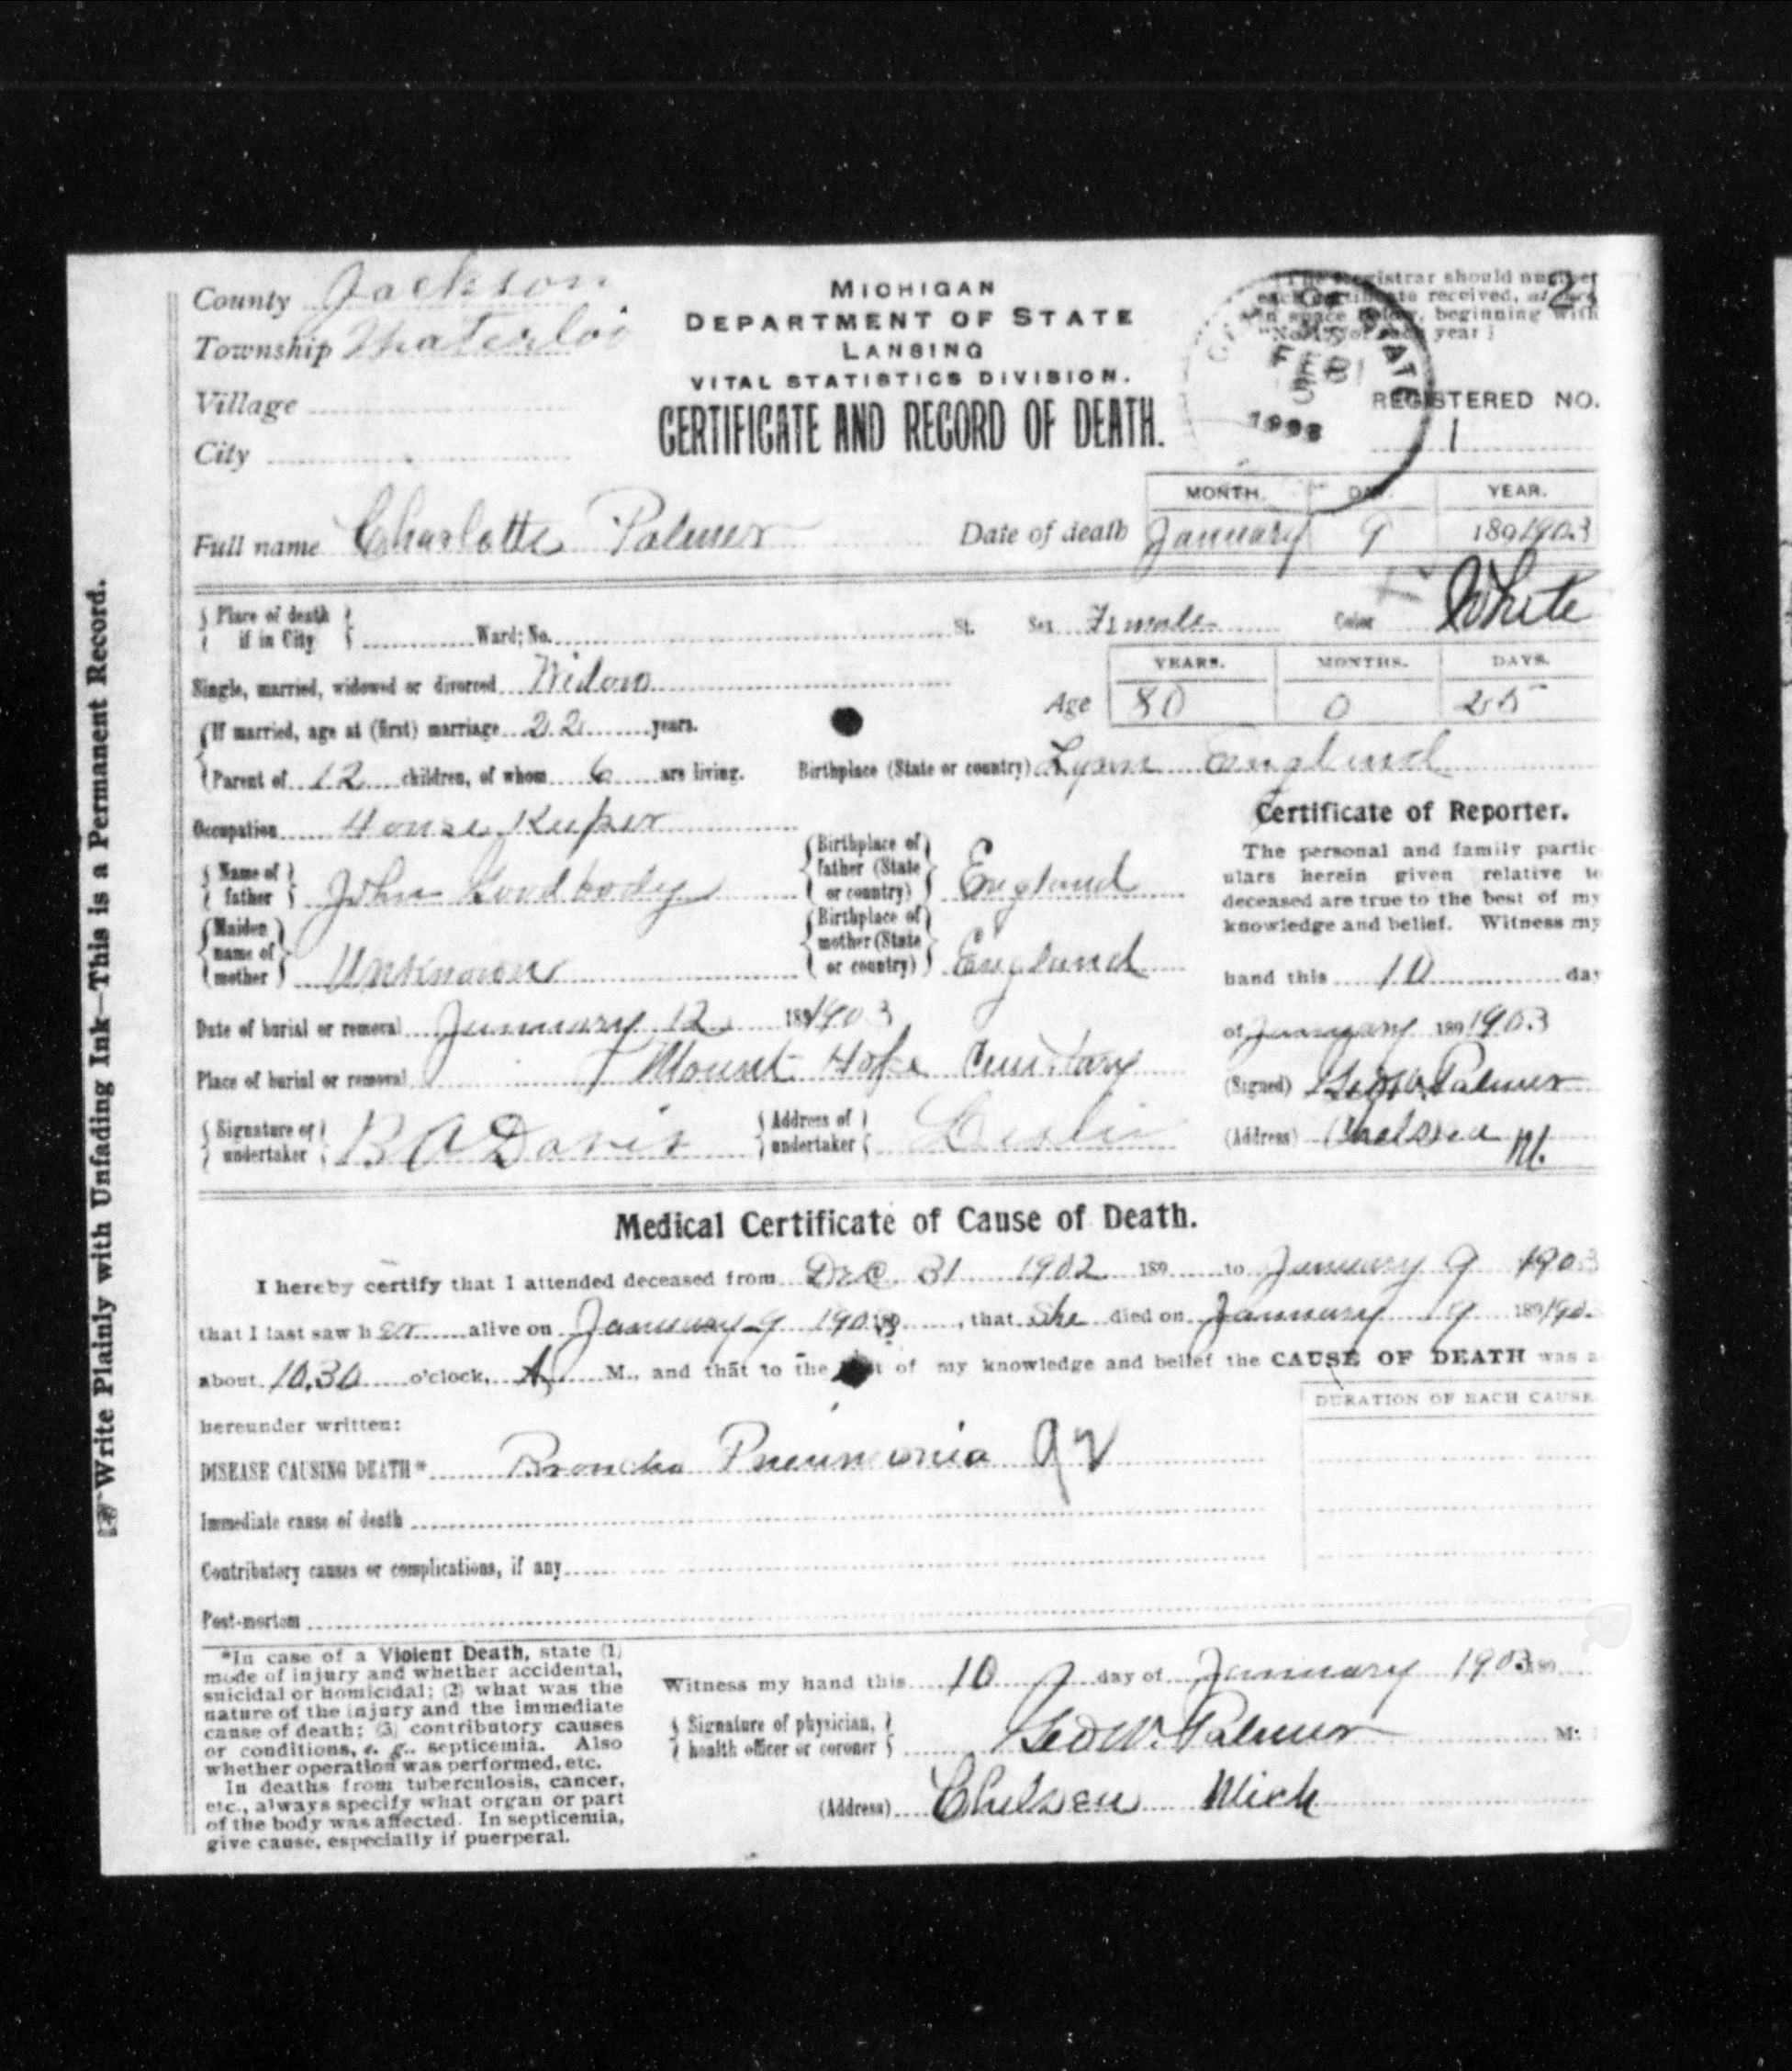 County Jackson
Township Waterloo
Village
City
MICHIGAN
DEPARTMENT OF STATE
LANSING
VITAL STATISTICS DIVISION.
CERTIFICATE AND RECORD OF DEATH.
(The Registrar should number
each certificate received,
in space below, beginning with
"No. 1," for each year)
2
FEB
5
1903
REGISTERED NO.
1
Full name Charlotte Palmer Date of death
MONTH. DAY. YEAR.
January 9 1891903
Place of death if in City Ward; No. St. Sex Female Color White
Single, married, widowed or divorced Widow
YEARS. MONTHS. DAYS.
Age 80 0 25
If married, age at (first) marriage 22 years.
Parent of 12 children, of whom 6 are living. Birthplace (State or country) Lynn England
Occupation House Keeper
Name of father John Goodbody Birthplace of father (State or country) England
Maiden name of mother Unknown Birthplace of mother (State or country) England
Date of burial or removal January 12 1891903
Place of burial or removal Mount Hope Cemetary
Signature of undertaker B A Davis Address of undertaker Leslie
Certificate of Reporter.
The personal and family partic
ulars herein given relative to
deceased are true to the best of my
knowledge and belief. Witness my
hand this 10 day
of January 1891903
(Signed) Geo W. Palmer
(Address) Chelsea M.
Write Plainly with Unfading Ink—This is a Permanent Record.
Medical Certificate of Cause of Death.
I hereby certify that I attended deceased from Dec 31 1902 189 to January 9 1903
that I last saw her alive on January 9 1903, that She died on January 9 189190
about 10.30 o'clock, A M., and that to the best of my knowledge and belief the CAUSE OF DEATH was a
hereunder written:
DURATION OF EACH CAUSE.
DISEASE CAUSING DEATH* Broncho Pneumonia 92
Immediate cause of death
Contributory causes or complications, if any
Post-mortem
*In case of a Violent Death, state (1)
mode of injury and whether accidental,
suicidal or homicidal; (2) what was the
nature of the injury and the immediate
cause of death; (3) contributory causes
or conditions, e. g., septicemia. Also
whether operation was performed, etc.
In deaths from tuberculosis, cancer,
etc., always specify what organ or part
of the body was affected. In septicemia,
give cause, especially if puerperal.
Witness my hand this 10 day of January 1903 189
Signature of physician, health officer or coroner Geo W. Palmer M.
(Address) Chelsea Mich